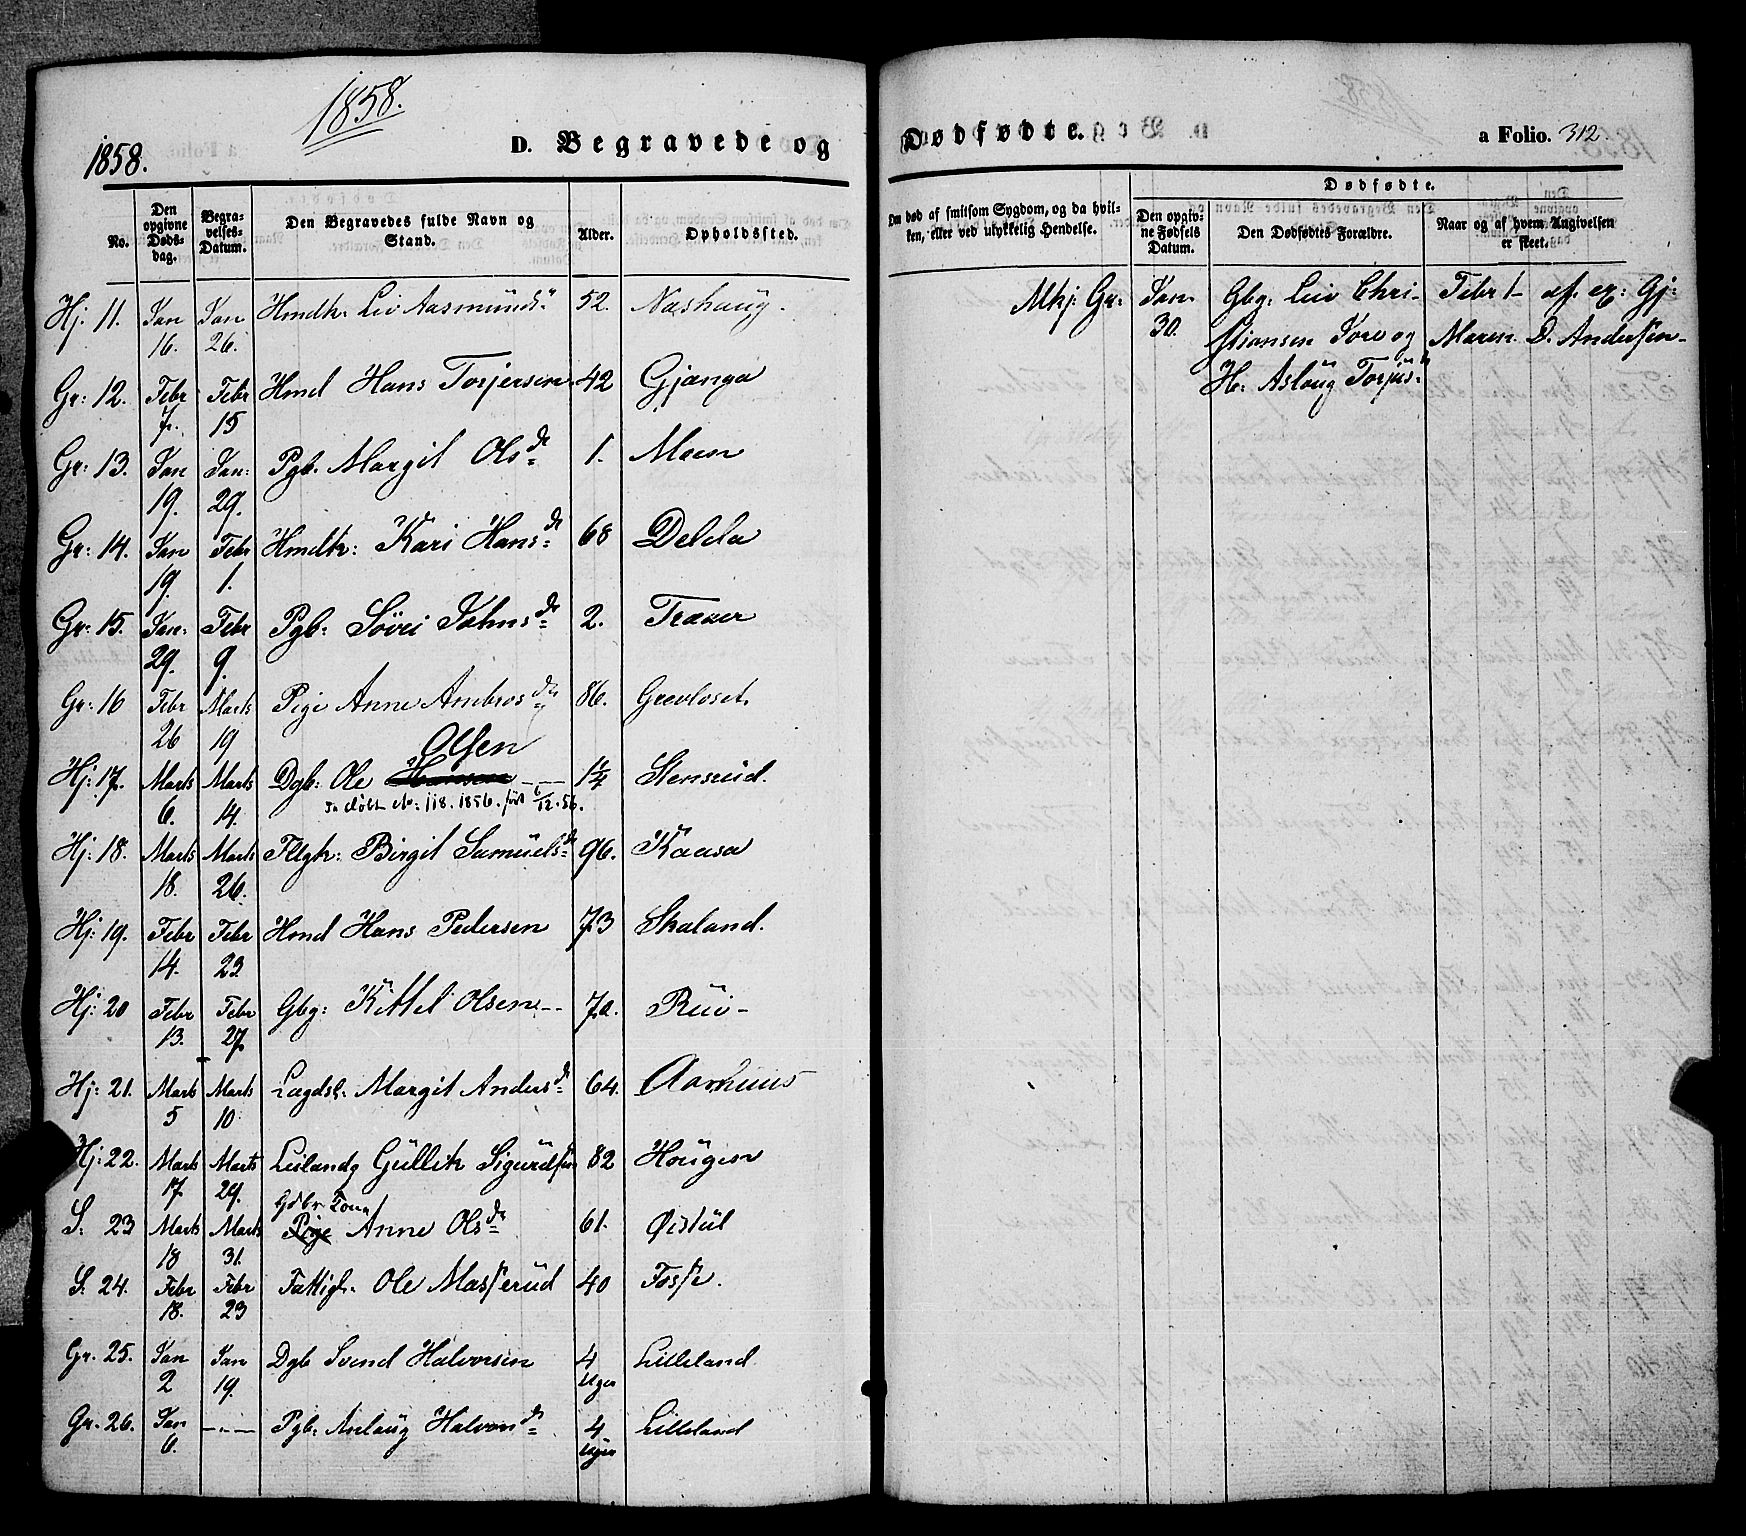 1858.
1858.
D. Begravede og
Dødfødte.
a Folio. 312.
No.
Den opgivne Døds-dag.
Begra-velses-Datum.
Den Begravedes fulde Navn og Stand.
Alder.
Opholdssted.
Om død af smitsom Sygdom, og da hvil-ken, eller ved ulykkelig Hendelse.
Dødfødte.
Den opgiv-ne Fødsels Datum.
Den Dødfødtes Forældre.
Naar og af hvem Angivelsen er skeet.
Hj: 11. Jan 16. Jan 26. Hmdk: Liv Aasmunds 52. Nashaug.
Gr: 12. Febr 7. Febr 15 Hmd Hans Torjersen 42 Gjønga
Gr: 13. Jan 19. Jan: 29. Pgb. Margit Olsdr 1. Moen
Gr: 14. Jan 19. Febr 1. Hmdk: Kari Hansdr 68 Delda
Gr: 15. Jan: 29. Febr 9. Pgb: Søvei Johnsdr 2. Traaer
Gr: 16 Febr 26 Marts 19 Pige Anne Ambrosdr 86. Grevloset.
Olsen
Hj: 17. Marts 6. Marts 14. Dgb: Ole Hansen 1¼ Stensrud.
Se døbte No: 118. 1856. født 6/12. 56.
Hj: 18. Marts 18. Marts 26. Flgk: Birgit Samuelsdr 96. Kaasa
Hj: 19. Febr 14. Febr 23 Hmd Hans Pedersen 73 Skaland.
Hj: 20 Febr 13. Febr 27 Gbg: Kittel Olsen 70. Rui
Hj: 21. Marts 5 Marts 10 Lægdsl. Margit Andersdr 64. Aarhuus
Hj: 22. Marts 17. Marts 29. Leilændg Gullik Sigurdsen 82 Hougen
Gdbr. Kona
S: 23 Marts 18 Marts 31. Pige Anne Olsdr 61. Øistul
S: 24. Febr 18. Febr 23 Fattigl. Ole Masserud 40 Fosse.
Gr. 25. Jan 2 Jan 19. Dgb Svend Halvorsen 4 Uger Lilleland
Gr. 26. Jan 6. Pgb: Anlaug Halvorsdr 4 Uger Lilleland
Mkj: Gr: Jan 30. Gbg: Leiv Chri- Febr 1 af ex: Gj:
stiansen Tore og Maren D. Andersen
H: Aslaug Torjus